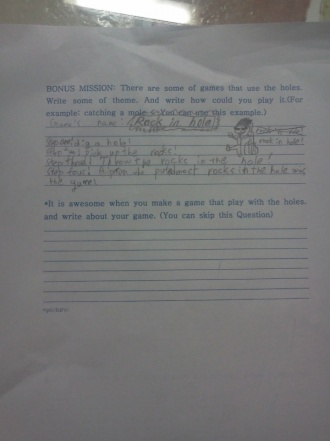 BONUS MISSION: There are some of games that use the holes.
Write some of theme. And write how could you play it.(For
example: catching a mole You can use this example.)
Game's name: Rock in hole!
rock in hole!
dig a hole!
pick up the rocks!
Throw the rocks in the hole!
put most rocks in the hole wins
the game!
*It is awesome when you make a game that play with the holes.
and write about your game. (You can skip this Question)